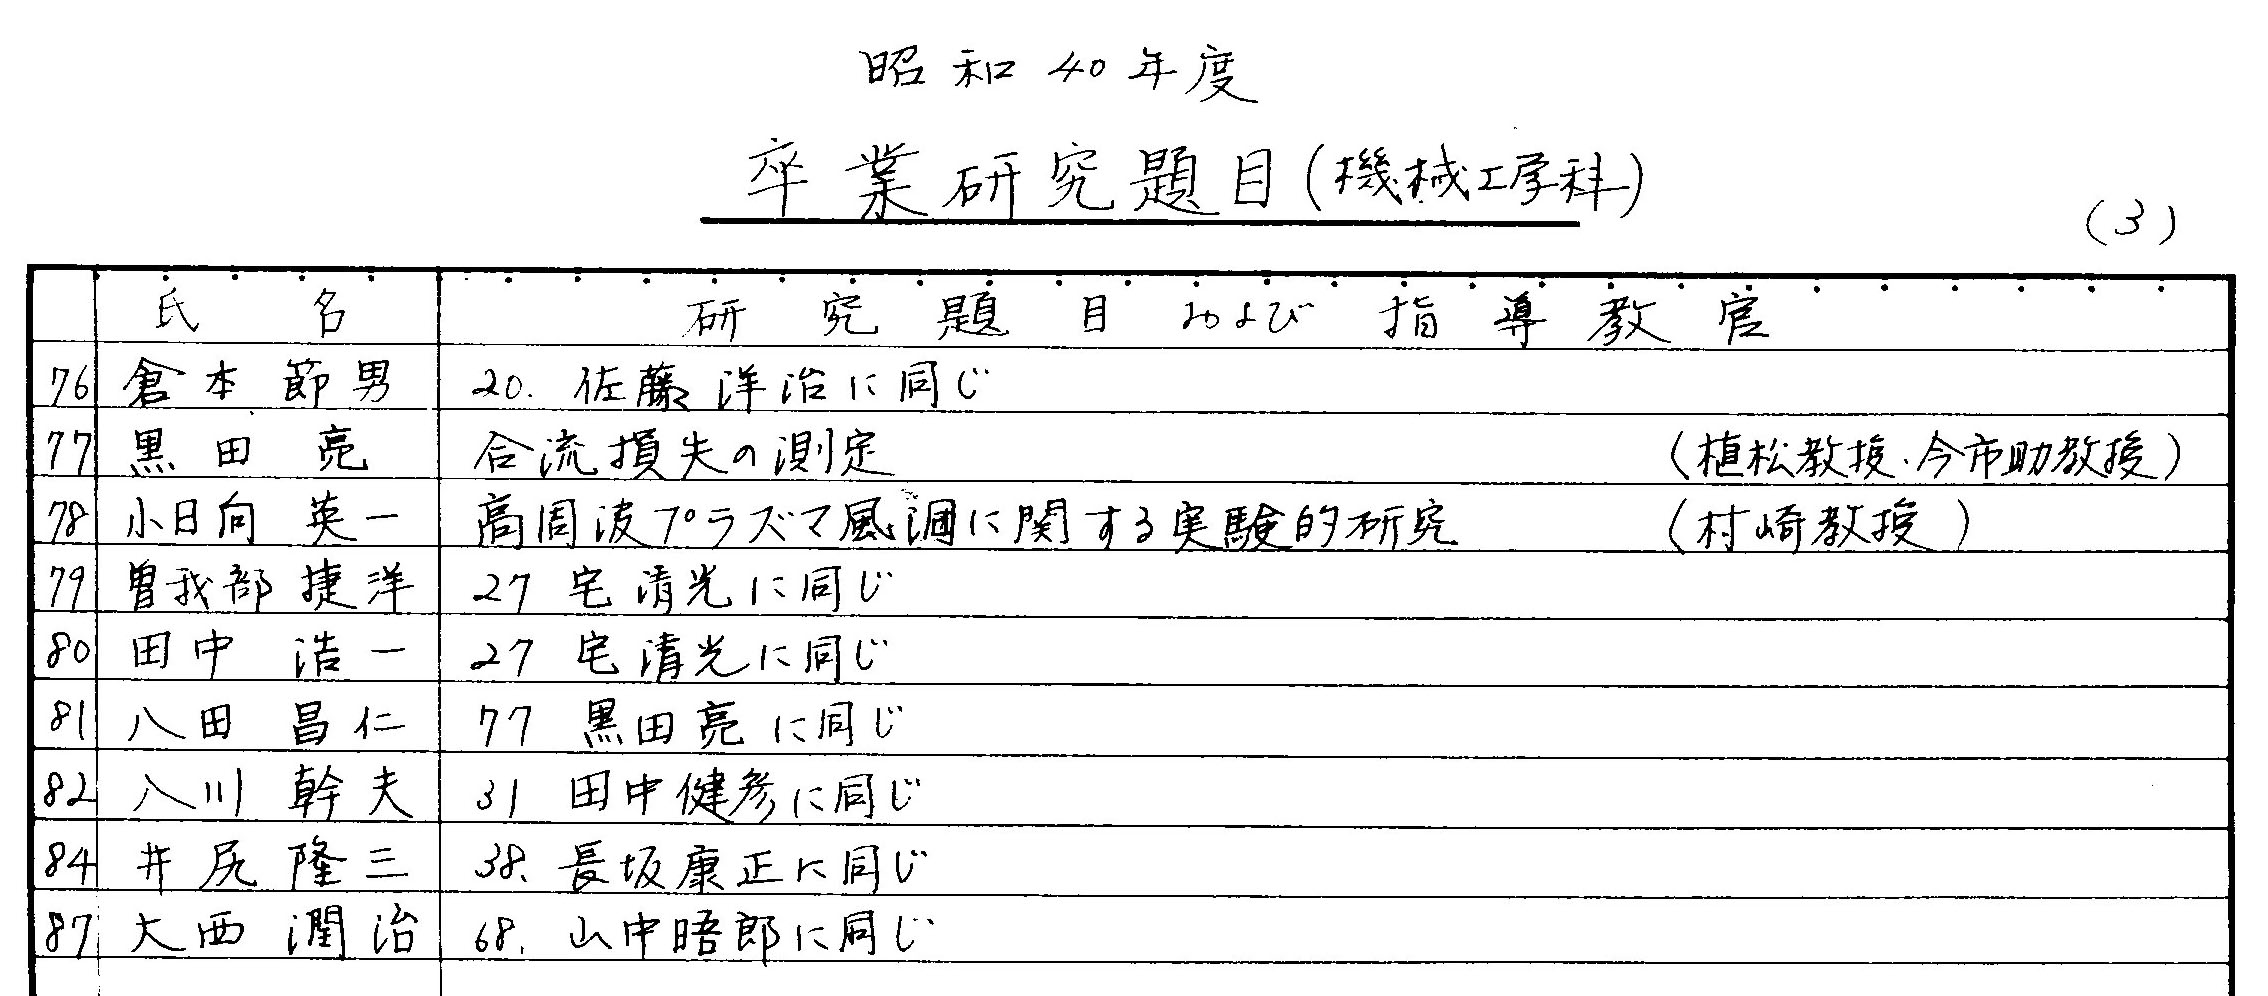 昭和40年度
卒業研究題目(機械工学科)
(3)
氏名 研究題目および指導教官
76 倉本節男 20. 佐藤洋治に同じ
77 黒田亮 合流損失の測定 (植松教授、今市助教授)
78 小日向英一 高周波プラズマ風洞に関する実験的研究 (村崎教授)
79 曽我部捷洋 27 宅清光に同じ
80 田中浩一 27 宅清光に同じ
81 八田昌仁 77 黒田亮に同じ
82 八川幹夫 31 田中健彦に同じ
84 井尻隆三 38. 長坂康正に同じ
87 大西潤治 68. 山中晤郎に同じ